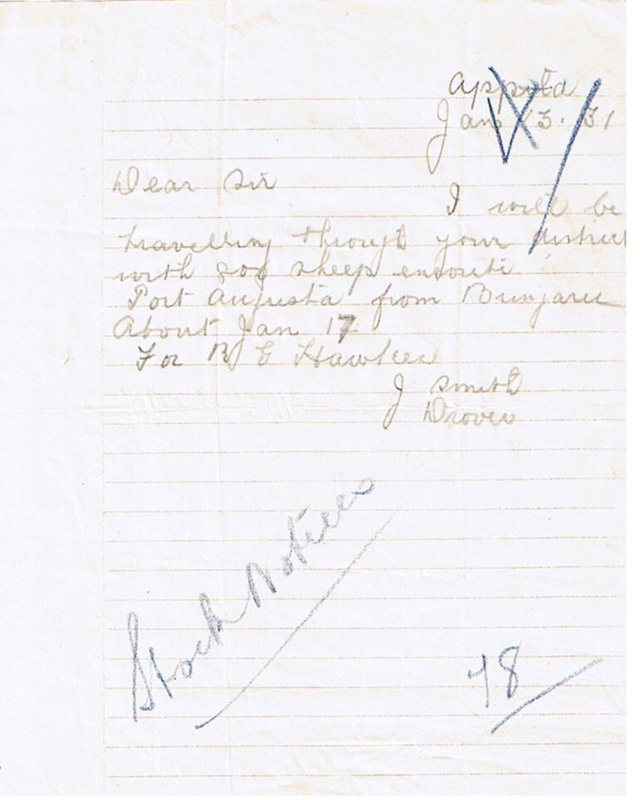 Appila
Jan 13. 31
Dear Sir
I will be
travelling through your district
with 800 sheep enroute
Port Augusta from Bungaree
About Jan 17
For R E Hawker
J Smith
Drover
Stock Notices